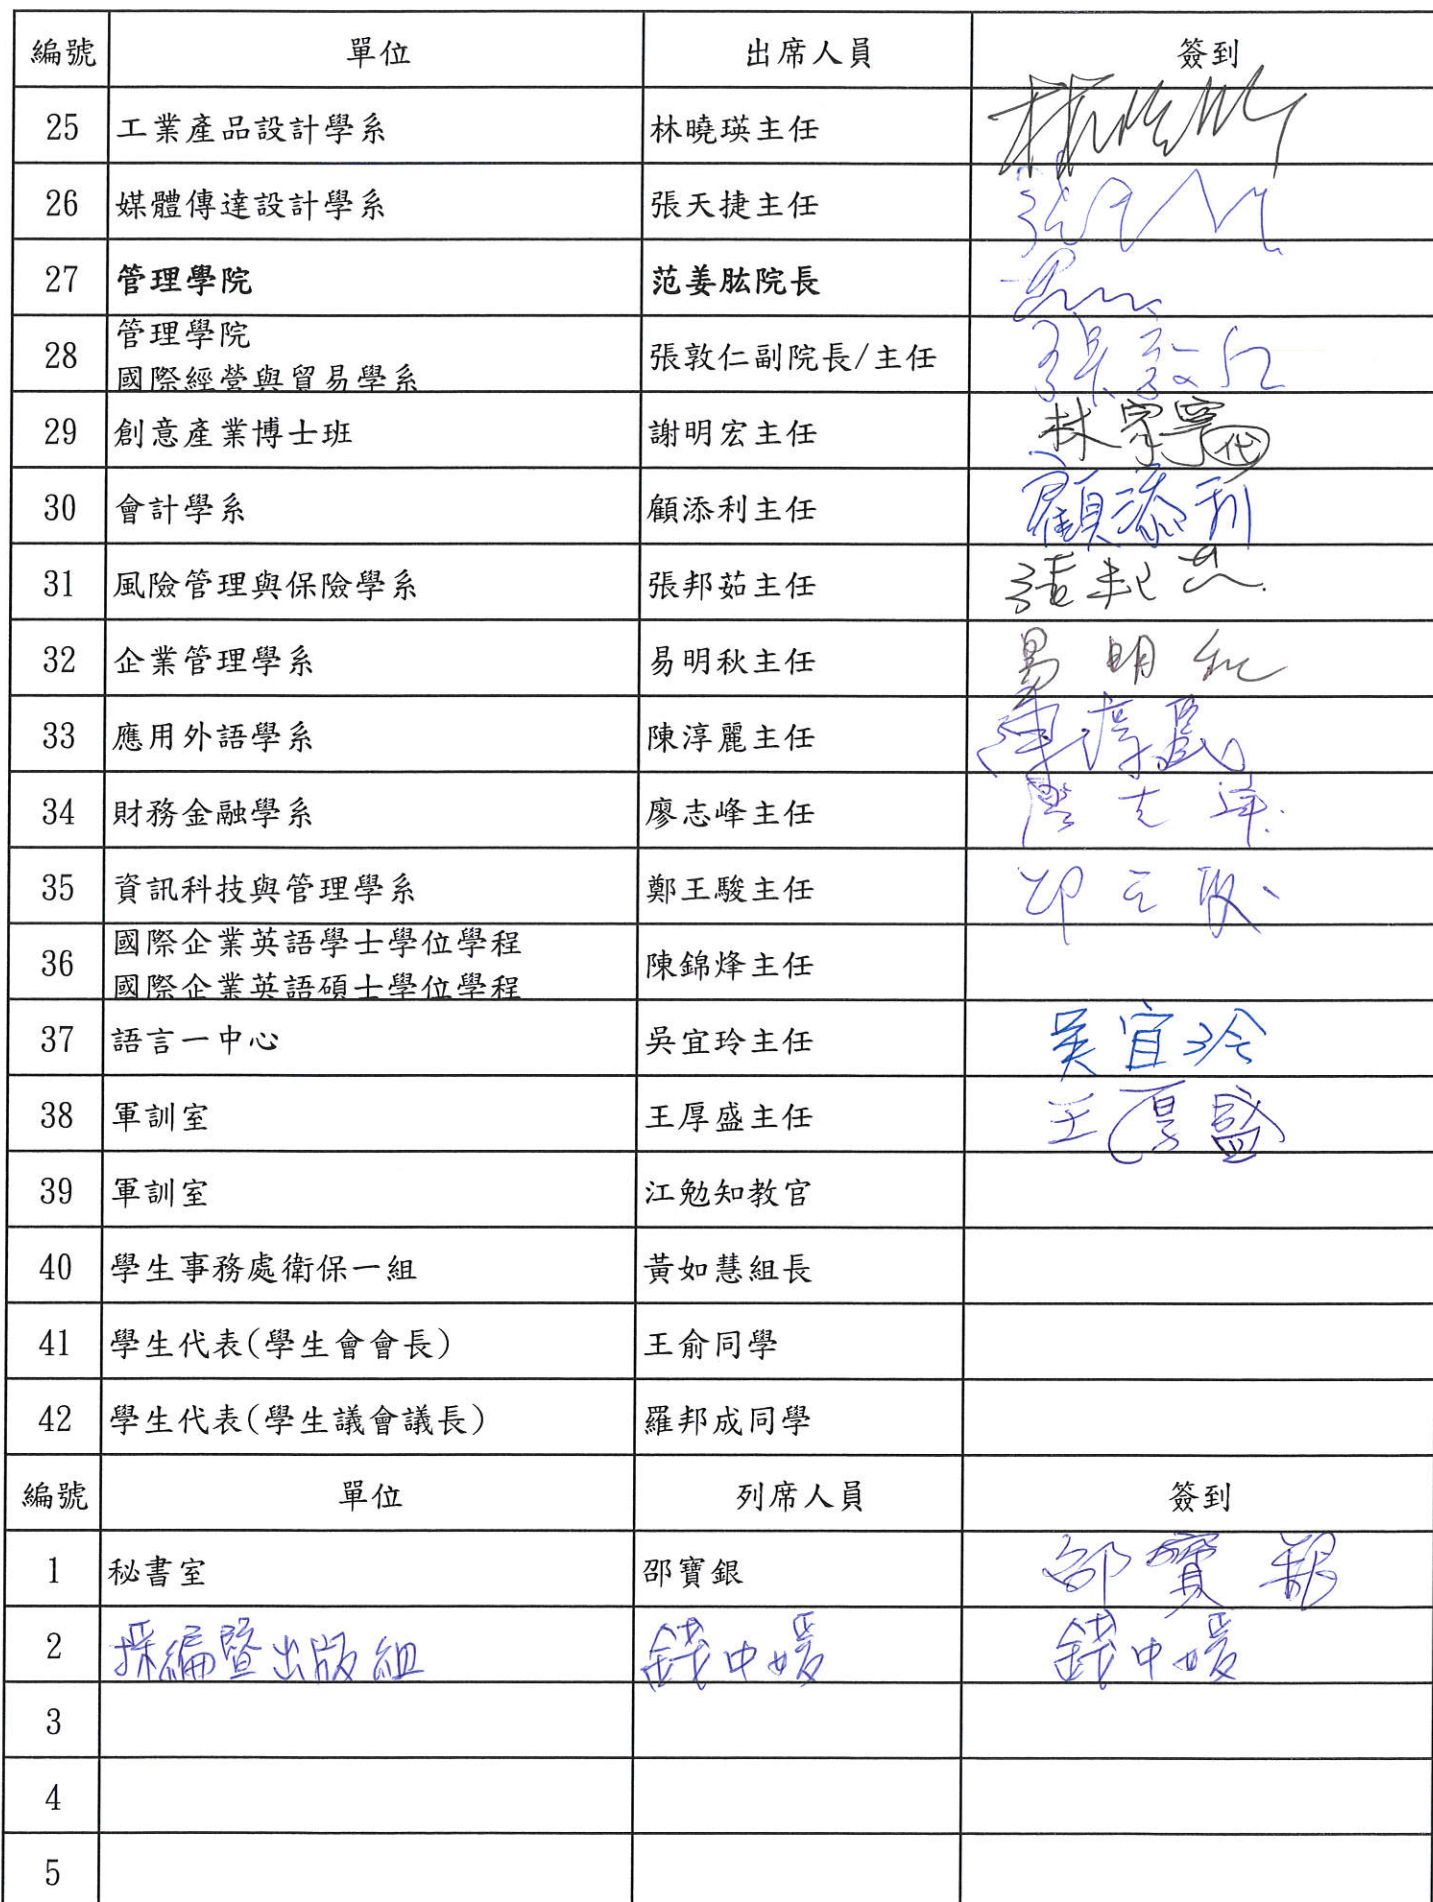 編號 單位 出席人員 簽到
25 工業產品設計學系 林曉瑛主任
26 媒體傳達設計學系 張天捷主任
27 管理學院 范姜肱院長
28 管理學院 國際經營與貿易學系 張敦仁副院長/主任 張敦仁
29 創意產業博士班 謝明宏主任 林家寧代
30 會計學系 顧添利主任 顧添利
31 風險管理與保險學系 張邦茹主任 張邦茹
32 企業管理學系 易明秋主任 易明秋
33 應用外語學系 陳淳麗主任 陳淳麗
34 財務金融學系 廖志峰主任 廖志峰
35 資訊科技與管理學系 鄭王駿主任
36 國際企業英語學士學位學程 國際企業英語碩士學位學程 陳錦烽主任
37 語言一中心 吳宜玲主任 吳宜玲
38 軍訓室 王厚盛主任 王厚盛
39 軍訓室 江勉知教官
40 學生事務處衛保一組 黃如慧組長
41 學生代表(學生會會長) 王俞同學
42 學生代表(學生議會議長) 羅邦成同學
編號 單位 列席人員 簽到
1 秘書室 邵寶銀 邵寶銀
2 採編暨出版組 錢中媛 錢中媛
3
4
5